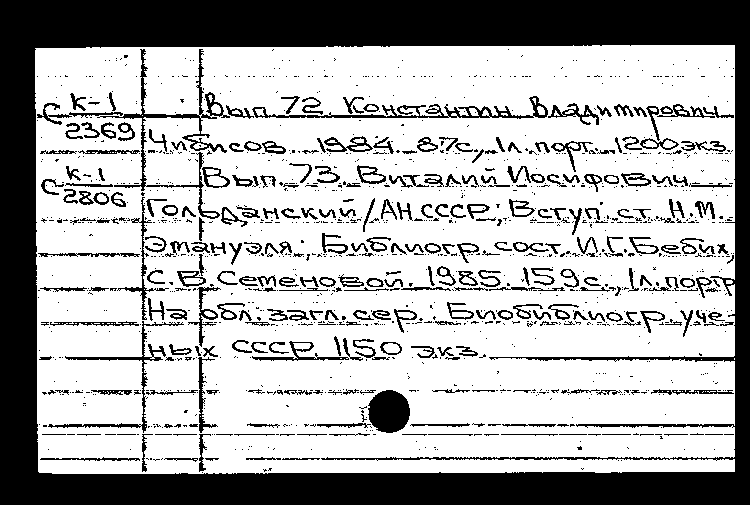 С К-1 Вып. 72. Константин Владимирович
2369 Чибисов. 1984. 87с., 1л. порт. 1200экз.
С К-1 Вып. 73. Виталий Иосифович
2806 Гольданский / АН СССР; Вступ. ст. Н.М.
Эмануэля; Библиогр. сост. И.Г. Бебих,
С.В. Семеновой. 1985. 159с., 1л. портр
На обл. загл. сер.: Биобиблиогр. уче-
ных СССР. 1150 экз.